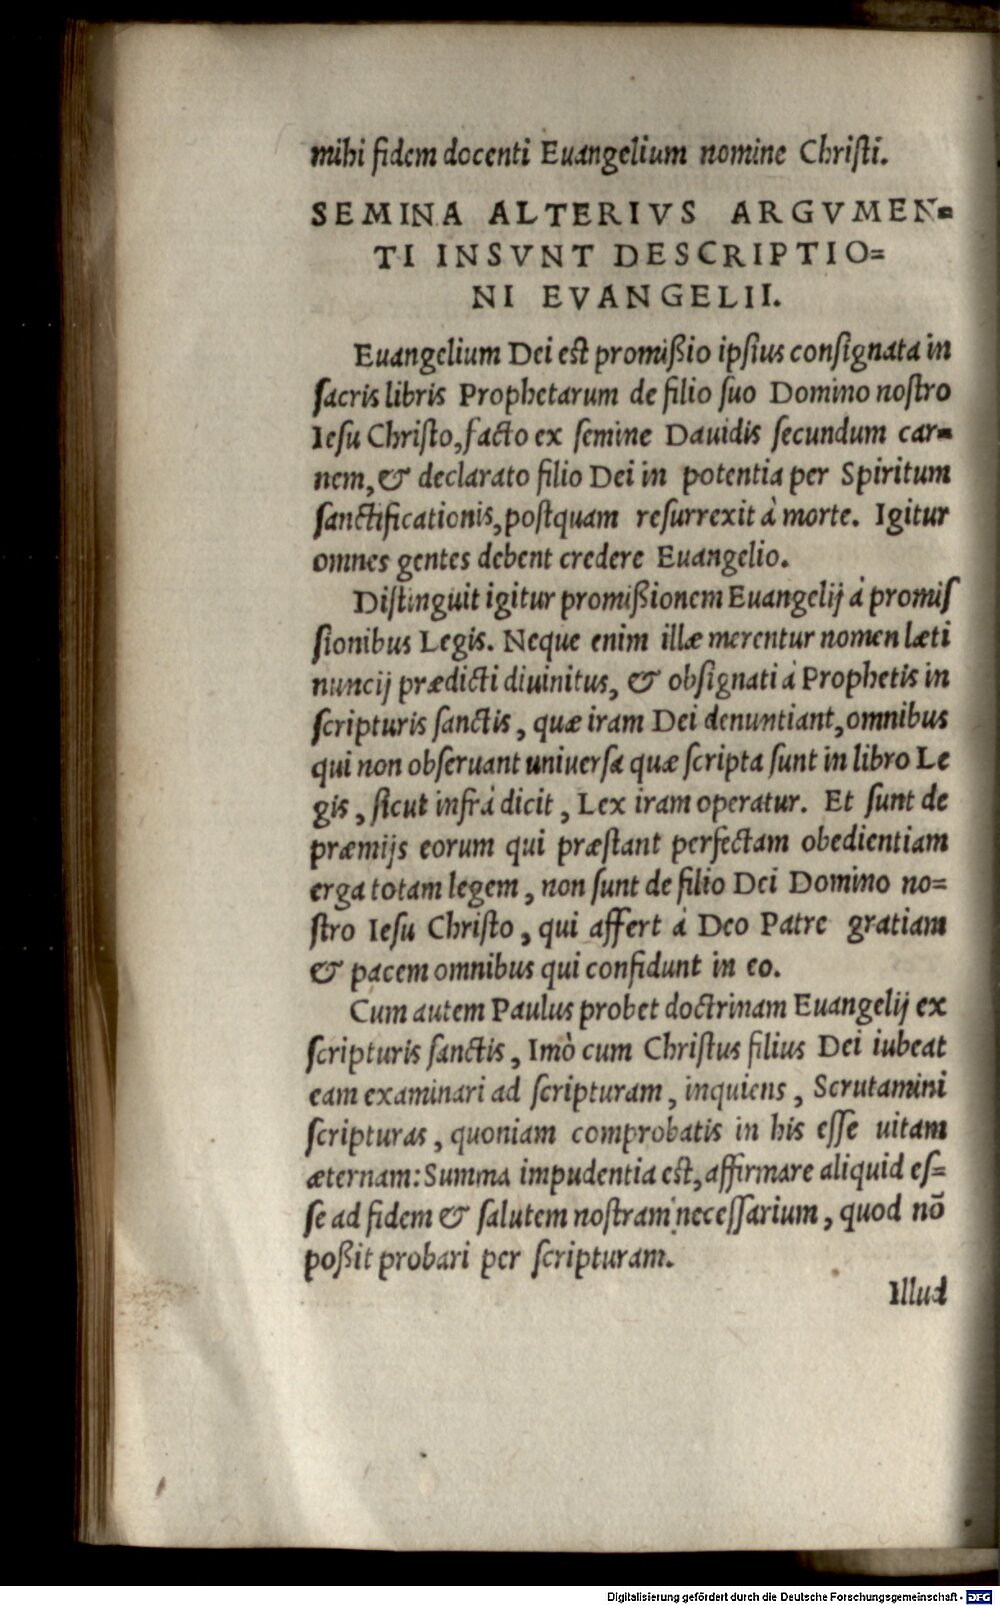 mihi fidem docenti Euangelium nomine Christi.
SEMINA ALTERIVS ARGVMEN=
TI INSVNT DESCRIPTIO=
NI EVANGELII.
Euangelium Dei est promißio ipsius consignata in
sacris libris Prophetarum de filio suo Domino nostro
Iesu Christo, facto ex semine Dauidis secundum car=
nem, & declarato filio Dei in potentia per Spiritum
sanctificationis, postquam resurrexit à morte. Igitur
omnes gentes debent credere Euangelio.
Distinguit igitur promißionem Euangelij à promis
sionibus Legis. Neque enim illæ merentur nomen læti
nuncij prædicti diuinitus, & obsignati à Prophetis in
scripturis sanctis, quæ iram Dei denuntiant, omnibus
qui non obseruant uniuersa quæ scripta sunt in libro Le
gis, sicut infrà dicit, Lex iram operatur. Et sunt de
præmijs eorum qui præstant perfectam obedientiam
erga totam legem, non sunt de filio Dei Domino no=
stro Iesu Christo, qui affert à Deo Patre gratiam
& pacem omnibus qui confidunt in eo.
Cum autem Paulus probet doctrinam Euangelij ex
scripturis sanctis, Imò cum Christus filius Dei iubeat
eam examinari ad scripturam, inquiens, Scrutamini
scripturas, quoniam comprobatis in his esse uitam
æternam: Summa impudentia est, affirmare aliquid es=
se ad fidem & salutem nostram necessarium, quod nõ
poßit probari per scripturam.
Illud
Digitalisierung gefördert durch die Deutsche Forschungsgemeinschaft - DFG